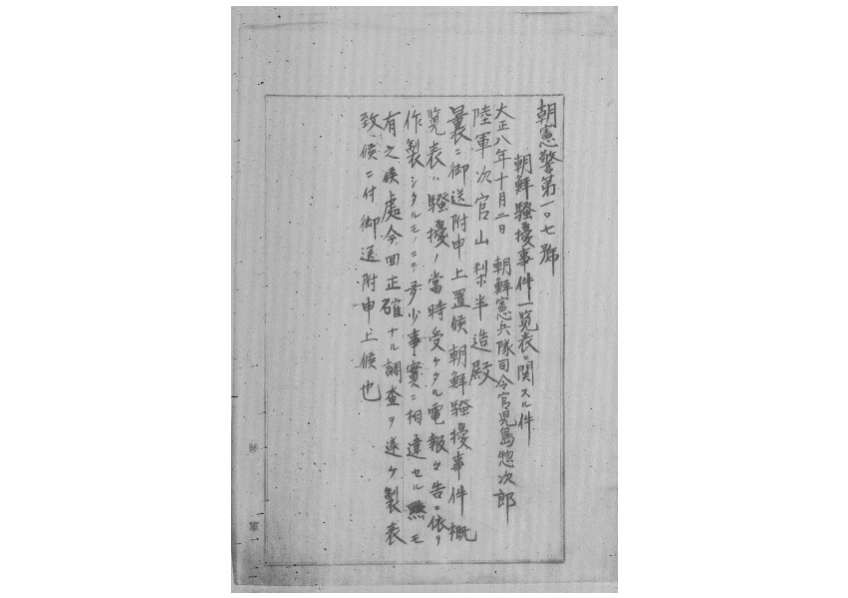 朝憲警第一〇七號
朝鮮騷擾事件一覽表ニ關スル件
大正八年十月二日 朝鮮憲兵隊司令官児島惣次郎
陸軍次官山梨半造殿
曩ニ御送附申上置候朝鮮騷擾事件概
覽表ハ騷擾ノ當時受ケタル電報報告ニ依リ
作製シタルモノニテ多少事實ニ相違セル點モ
有之候處今回正確ナル調查ヲ遂ケ製表
致候ニ付御送附申上候也